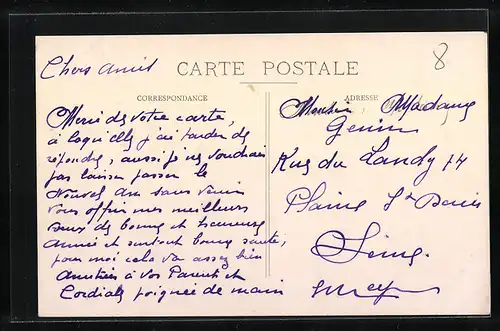 8
Chers amis
CARTE POSTALE
CORRESPONDANCE
ADRESSE
Merci de votre carte,
à laquelle j'ai tarder de
répondre, aussi je ne voudrais
pas laisser passer le
Nouvel An sans venir
vous offrir mes meilleurs
vœux de bonne et heureuse
Année et surtout bonne santé,
pour moi cela va assez bien
Amitiés à vos Parents et
Cordiale poignée de main
Monsieur Madame
Genin
Rue du Landy 74
Plaine St Denis
Seine